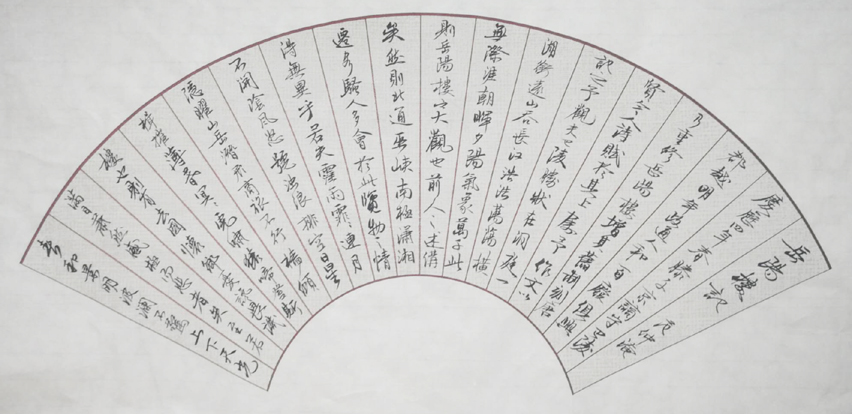 岳陽樓記
慶曆四年春滕子京 范仲淹
郡越明年政通人和 謫守巴陵
乃重修岳陽樓增其舊制刻唐
賢今人詩賦於其上屬予作文以
記之予觀夫巴陵勝狀在洞庭一
湖銜遠山吞長江浩浩蕩蕩橫
無際涯朝暉夕陽氣象萬千此
則岳陽樓之大觀也前人之述備
矣然則北通巫峽南極瀟湘
遷客騷人多會於此覽物之情
得無異乎若夫霪雨霏霏連月
不開陰風怒號濁浪排空日星
隱曜山岳潛形商旅不行檣傾
楫摧薄暮冥冥虎嘯猿啼登斯
樓也則有去國懷鄉憂讒畏譏
滿目蕭然感極而悲者矣至若
春和景明波瀾不驚上下天光